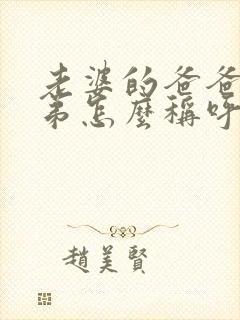 老婆的爸爸
弟怎麼稱呼
趙美賢